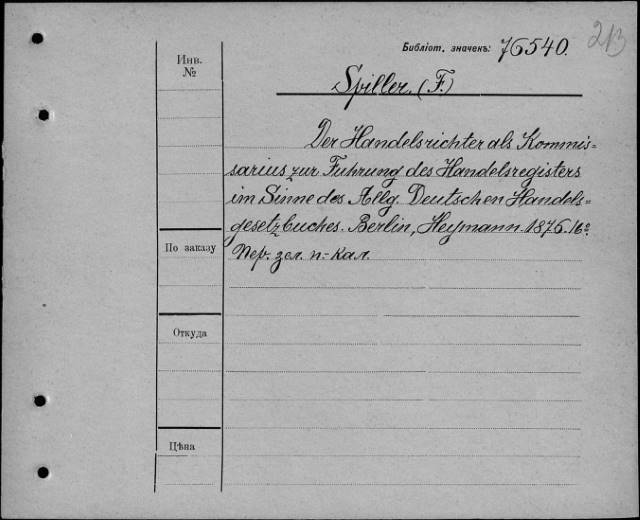 213
Библіот. значекъ: 76540.
Инв. №
Spiller. (F.)
Der Handelsrichter als Kommis-
sarius zur Fuhrung des Handelsregisters
im Sinne des Allg. Deutschen Handels-
gesetzbuches. Berlin, Heymann. 1876. 16º.
По заказу
Пер. зел. п.-кал.
Откуда
Цѣна